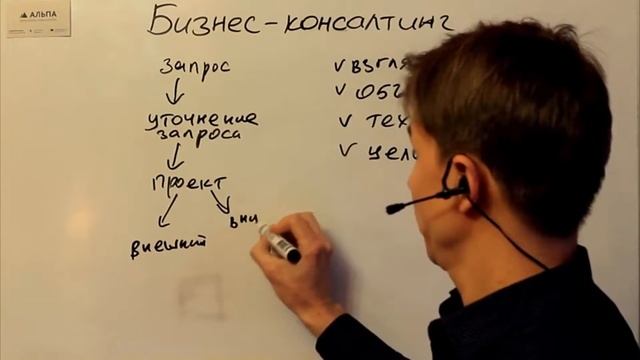 АЛЬПА
Бизнес-консалтинг
Запрос
уточнение
запроса
Проект
внешний
вни
v взгля
v обг
v тех
v цели